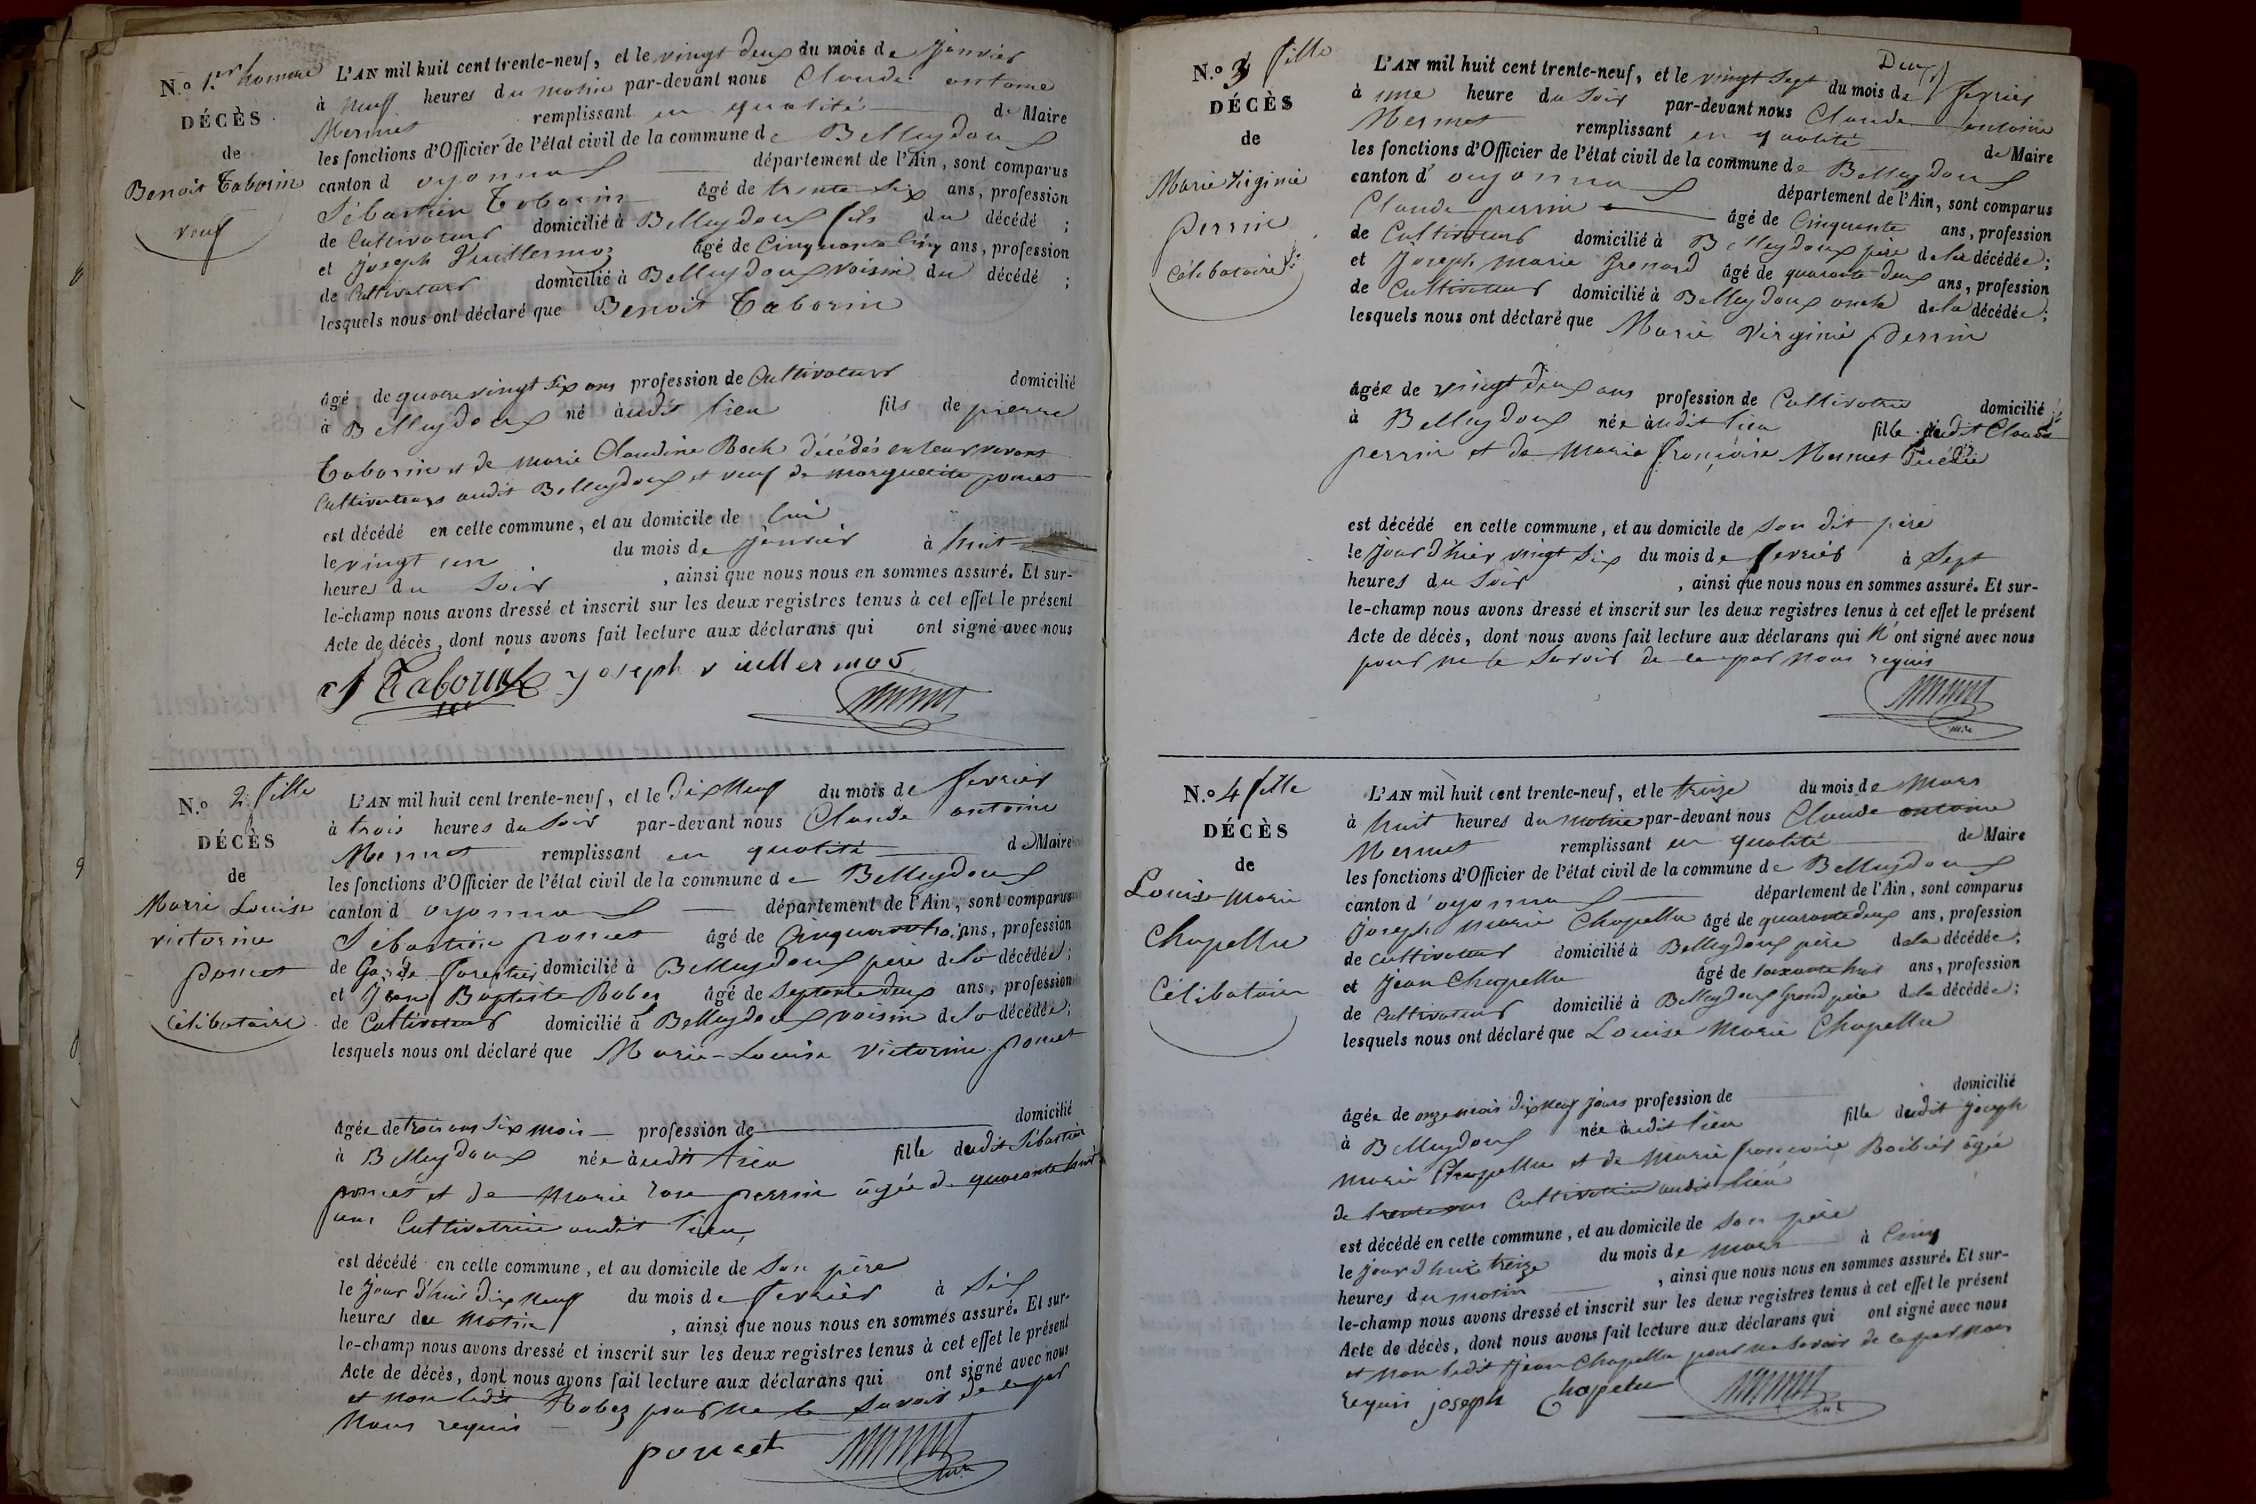 N.o 1.er homme
DÉCÈS
de
Benoit Taborin
veuf
L'AN mil huit cent trente-neuf, et le vingt deux du mois de janvier
à neuf heures du matin par-devant nous Claude antoine
Mermet remplissant en qualité de Maire
les fonctions d'Officier de l'état civil de la commune de Belleydoux
canton d oyonnax département de l'Ain, sont comparus
Sébastien Taborin âgé de trente six ans, profession
de Cultivateur domicilié à Belleydoux fils du décédé ;
et joseph Vuillermoz âgé de Cinquante Cinq ans, profession
de Cultivateur domicilié à Belleydoux voisin du décédé ;
lesquels nous ont déclaré que Benoit Taborin
âgé de quatre vingt six ans profession de Cultivateur domicilié
à Belleydoux né àudit lieu fils de pierre
Taborin et de marie Claudine Roch décédés en leur vivant
Cultivateurs audit Belleydoux et veuf de marguerite poncet
est décédé en cette commune, et au domicile de lui
le vingt un du mois de janvier à huit
heures du soir , ainsi que nous nous en sommes assuré. Et sur-
le-champ nous avons dressé et inscrit sur les deux registres tenus à cet effet le présent
Acte de décès, dont nous avons fait lecture aux déclarans qui ont signé avec nous
S Taborin joseph vuillermoz
Mermet
N.o 2 fille
DÉCÈS
de
Marie Louise
victorine
poncet
Célibataire
L'AN mil huit cent trente-neuf, et le dix neuf du mois de fevrier
à trois heures du soir par-devant nous Claude antoine
Mermet remplissant en qualité de Maire
les fonctions d'Officier de l'état civil de la commune de Belleydoux
canton d oyonnax département de l'Ain, sont comparus
Sébastien poncet âgé de ans, profession
de Garde forestier domicilié à Belleydoux père de la décédée ;
et Jean Baptiste Robez âgé de septante deux ans, profession
de Cultivateur domicilié à Belleydoux voisin de la décédée ;
lesquels nous ont déclaré que Marie-Louise victorine poncet
âgée de trois ans six mois profession de domicilié
à Belleydoux née àudit lieu fille dudit Sébastien
poncet et de marie rose perrin âgée de quarante huit
ans Cultivatrice audit lieu,
est décédé en cette commune, et au domicile de son père
le jour d'hui dix neuf du mois de fevrier à six
heures du matin , ainsi que nous nous en sommes assuré. Et sur-
le-champ nous avons dressé et inscrit sur les deux registres tenus à cet effet le présent
Acte de décès, dont nous avons fait lecture aux déclarans qui ont signé avec nous
et non ledit Robez pour ne le savoir de ce par
nous requis
poncet Mermet
Deux
N.o 3 fille
DÉCÈS
de
Marie Virginie
perrin
Célibataire
L'AN mil huit cent trente-neuf, et le vingt sept du mois de fevrier
à une heure du soir par-devant nous Claude antoine
Mermet remplissant en qualité de Maire
les fonctions d'Officier de l'état civil de la commune de Belleydoux
canton d' oyonnax département de l'Ain, sont comparus
Claude perrin âgé de Cinquante ans, profession
de Cultivateur domicilié à Belleydoux père de la décédée ;
et Joseph marie Grenard âgé de quarante deux ans, profession
de Cultivateur domicilié à Belleydoux oncle de la décédée ;
lesquels nous ont déclaré que Marie Virginie perrin
âgée de vingt deux ans profession de Cultivatrice domicilié
à Belleydoux née àudit lieu fille dudit Claude
perrin et de marie françoise Mermet
est décédé en cette commune, et au domicile de son dit père
le jour d'hier vingt six du mois de fevrier à sept
heures du soir , ainsi que nous nous en sommes assuré. Et sur-
le-champ nous avons dressé et inscrit sur les deux registres tenus à cet effet le présent
Acte de décès, dont nous avons fait lecture aux déclarans qui n'ont signé avec nous
pour ne le savoir de ce par nous requis
Mermet
N.o 4 fille
DÉCÈS
de
Louise marie
Chapellu
Célibataire
L'AN mil huit cent trente-neuf, et le treize du mois de mars
à huit heures du matin par-devant nous Claude antoine
Mermet remplissant en qualité de Maire
les fonctions d'Officier de l'état civil de la commune de Belleydoux
canton d'oyonnax département de l'Ain, sont comparus
joseph marie Chapellu âgé de quarante deux ans, profession
de cultivateur domicilié à Belleydoux père de la décédée ;
et Jean Chapellu âgé de soixante huit ans, profession
de Cultivateur domicilié à Belleydoux grand père de la décédée ;
lesquels nous ont déclaré que Louise Marie Chapellu
âgée de onze mois dix neuf jours profession de domicilié
à Belleydoux née àudit lieu fille dudit joseph
marie Chapellu et de marie françoise âgée
de trente ans Cultivatrice audit lieu
est décédé en cette commune, et au domicile de son père
le jour d'hui treize du mois de mars à Cinq
heures du matin , ainsi que nous nous en sommes assuré. Et sur-
le-champ nous avons dressé et inscrit sur les deux registres tenus à cet effet le présent
Acte de décès, dont nous avons fait lecture aux déclarans qui ont signé avec nous
et non ledit Jean Chapellu pour ne savoir de ce par nous
requis joseph Chapelu Mermet